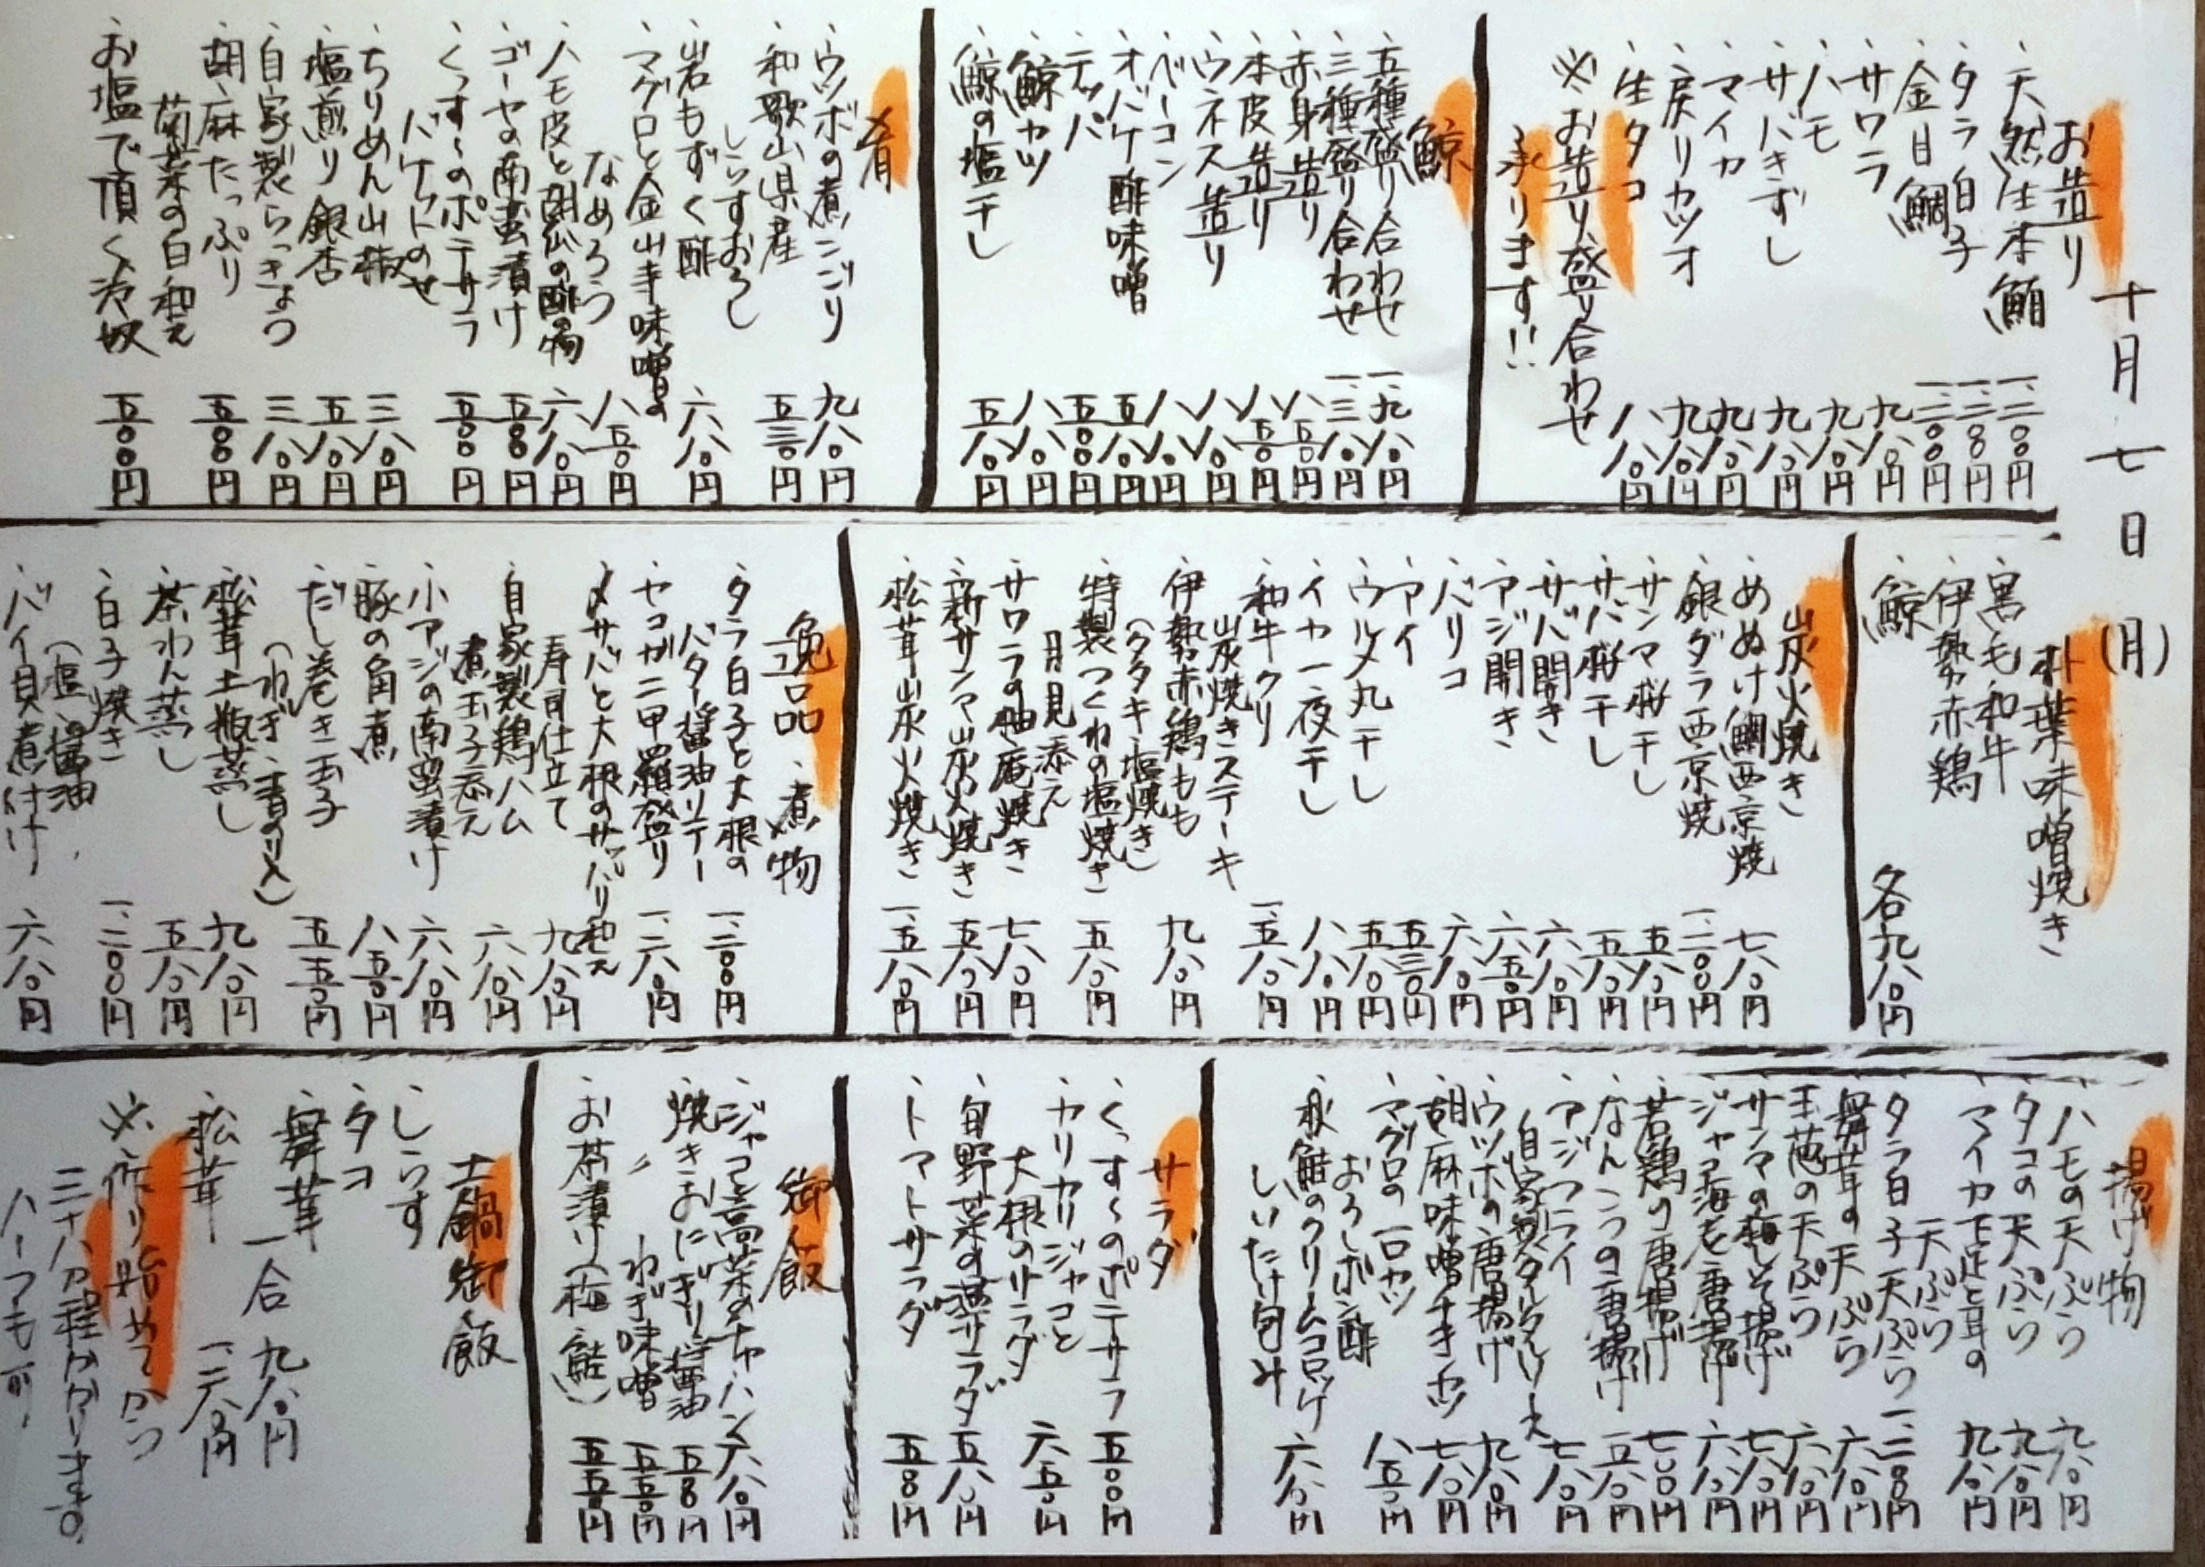 十月七日(月)
お造り
、天然生本鮪 一、三〇〇円
、タラ白子 一、三〇〇円
、金目鯛 一、二〇〇円
、サワラ 九八〇円
、ハモ 九八〇円
、サバきずし 九八〇円
、マイカ 九八〇円
、戻りカツオ 九八〇円
、生タコ 八八〇円
※お造り盛り合わせ
承ります!!
鯨
、五種盛り合わせ 一、九八〇円
、三種盛り合わせ 一、三八〇円
、赤身造り 八五〇円
、本皮造り 八五〇円
、ウネス造り 八八〇円
、ベーコン 八八〇円
、オバケ酢味噌 五八〇円
、テッパ 五〇〇円
、鯨カツ 八八〇円
、鯨の塩干し 五八〇円
肴
、ウツボの煮こごり 九八〇円
、和歌山県産
しらすおろし 五三〇円
、岩もずく酢 六八〇円
、マグロと金山寺味噌の
なめろう 八五〇円
、ハモ皮と胡瓜の酢の物 六八〇円
、ゴーヤの南蛮漬け 五〇〇円
、くっす〜のポテサラ
バケットのせ 五〇〇円
、ちりめん山椒 三八〇円
、塩煎り銀杏 五八〇円
、自家製らっきょう 三八〇円
、胡麻たっぷり
菊菜の白和え 五〇〇円
、お塩で頂く冷奴 五〇〇円
朴葉味噌焼き
、黒毛和牛
、伊勢赤鶏
、鯨
各九八〇円
炭火焼き
、めぬけ鯛西京焼 七八〇円
、銀ダラ西京焼 一、二〇〇円
、サンマ桜干し 五八〇円
、サバ桜干し 五八〇円
、サバ開き 六八〇円
、アジ開き 六五〇円
、バリコ 六八〇円
、アイ 五三〇円
、ウルメ丸干し 五八〇円
、イカ一夜干し 八八〇円
、和牛クリ
炭焼きステーキ 一、五八〇円
、伊勢赤鶏もも
(タタキ、塩焼き) 九八〇円
、特製つくねの塩焼き
月見添え 五八〇円
、サワラの柚庵焼き 七八〇円
、新サンマ炭火焼き 五八〇円
、松茸炭火焼き 一、五八〇円
逸品、煮物
、タラ白子と大根の
バター醤油ソテー 一、三〇〇円
、セコガニ甲羅盛り 一、二八〇円
、〆サバと大根のサッパリ和え
寿司仕立て 九八〇円
、自家製鶏ハム
煮玉子添え 六八〇円
、小アジの南蛮漬け 六八〇円
、豚の角煮 八五〇円
、だし巻き玉子
(ねぎ、青のり〆) 五五〇円
、松茸土瓶蒸し 九八〇円
、茶わん蒸し 五八〇円
、白子焼き
(塩、醤油 一、二〇〇円
、バイ貝煮付け 六八〇円
揚げ物
、ハモの天ぷら 九八〇円
、タコの天ぷら 九八〇円
、マイカ下足と耳の
天ぷら 九八〇円
、タラ白子天ぷら 一、三〇〇円
、舞茸の天ぷら 六八〇円
、玉葱の天ぷら 六八〇円
、サンマの梅しそ揚げ 七八〇円
、ジャコ海老唐揚げ 六八〇円
、若鶏の唐揚げ 七〇〇円
、なんこつの唐揚げ 五八〇円
、アジフライ
自家製タルタルソース 七八〇円
、ウツボの唐揚げ 九八〇円
、胡麻味噌チキンカツ 七八〇円
、マグロの一口カツ
おろしポン酢 八五〇円
、秋鮭のクリームコロッケ
しいたけ包み 六八〇円
サラダ
、くっす〜のポテサラ 五〇〇円
、カリカリジャコと
大根のサラダ 六五〇円
、旬野菜の塩サラダ 五八〇円
、トマトサラダ 五〇〇円
御飯
、ジャコと高菜のチャーハン 六八〇円
、焼きおにぎり、醤油 五〇〇円
〃 ねぎ味噌 五五〇円
、お茶漬け(梅、鮭) 五五〇円
土鍋御飯
、しらす
、タコ
、舞茸 一合 九八〇円
、松茸 一、二八〇円
※作り始めてから
三十八分程かかります。
ハーフも可